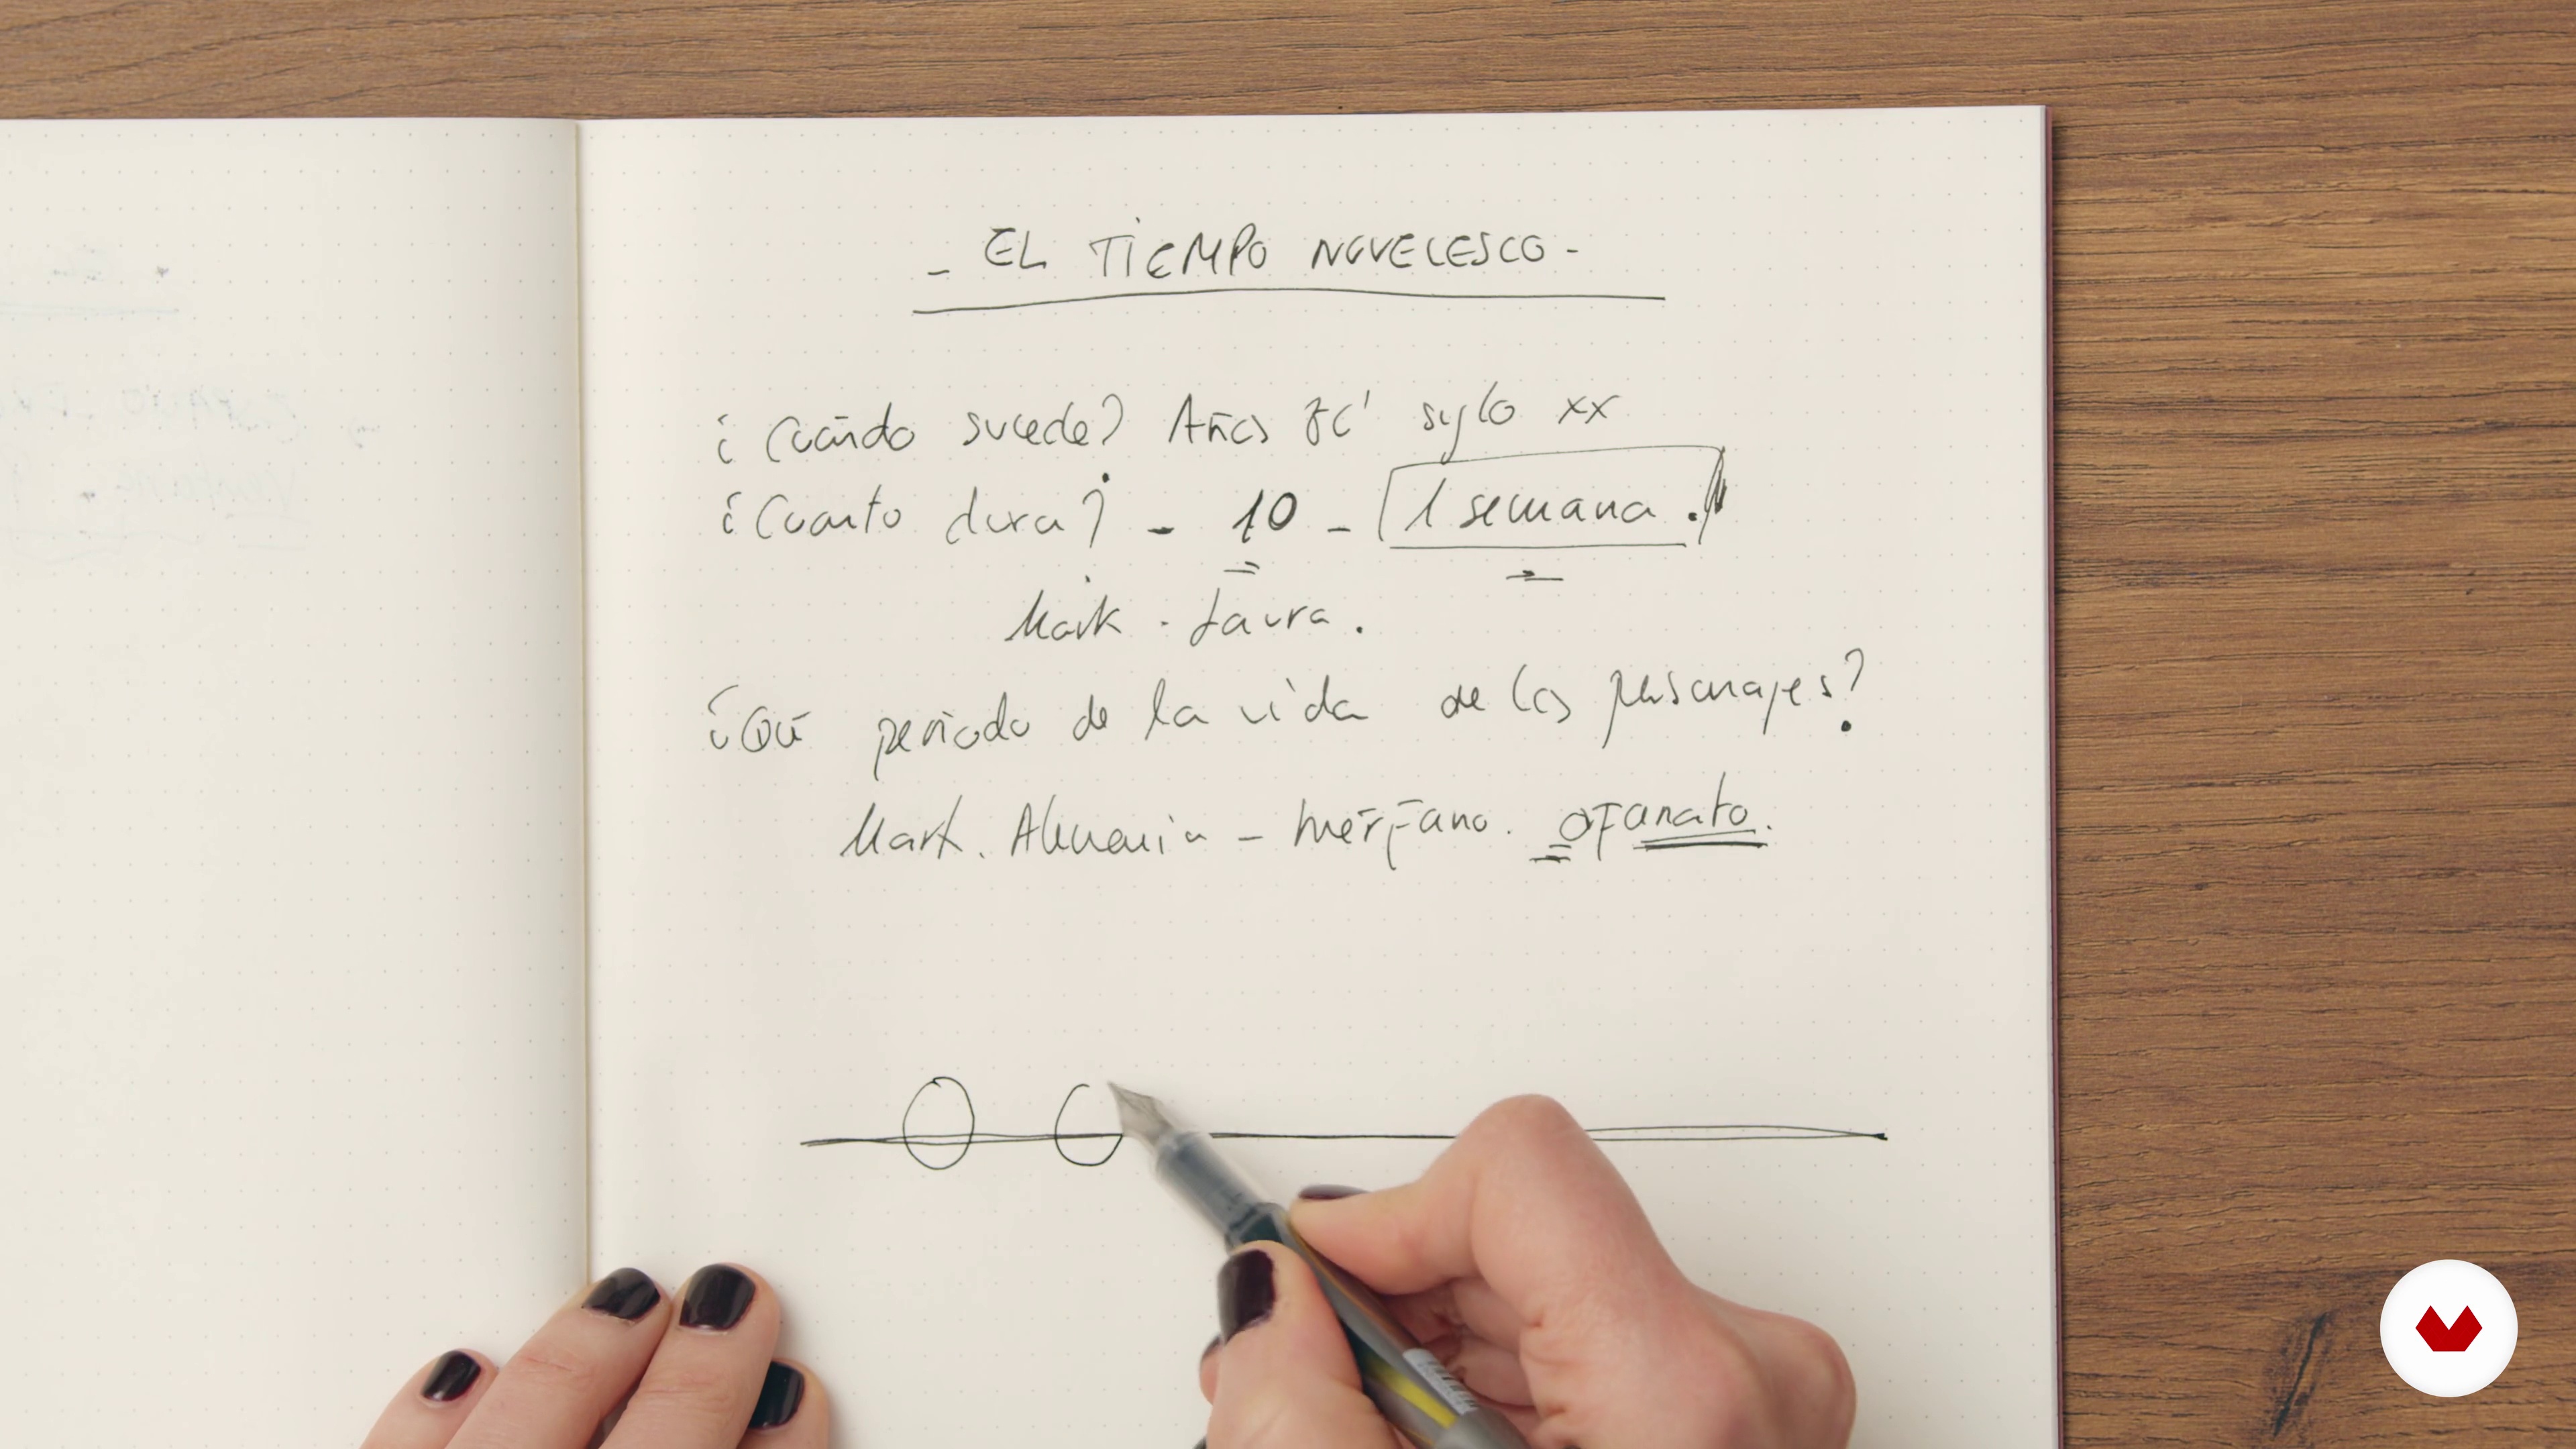 - EL TIEMPO NOVELESCO -
¿Cuándo sucede? Años 80' siglo xx
¿Cuanto dura? - 10 - 1 semana.
Mark - Laura.
¿Qué periodo de la vida de los personajes?
Mark. Alemania - huérfano. ofanato.